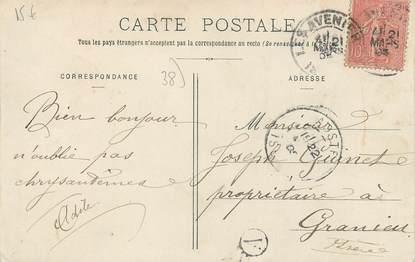 15€
CARTE POSTALE
Tous les pays étrangers n'acceptent pas la correspondance au recto
CORRESPONDANCE
38)
ADRESSE
Bien bonjour
n'oublie pas
chrysantèmes
Monsieur
Joseph
propriétaire à
Granieu
Isère
AVENIER
21
MARS
04
22